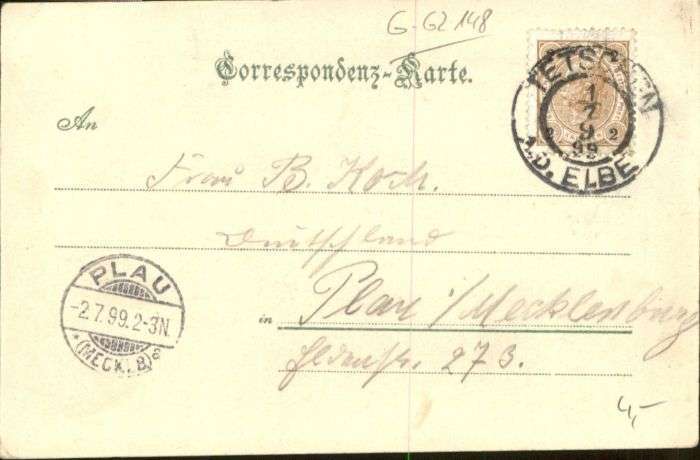 G-G2 148
Correspondenz-Karte.
TETSCHEN
1
7
9
2 2
99
A.D. ELBE
An
Frau B. Koch.
Deutschland
PLAU
-2.7.99.2-3N.
*(MECK.B)a
in Plau i/Mecklenburg
Eldenstr. 273.
4,-